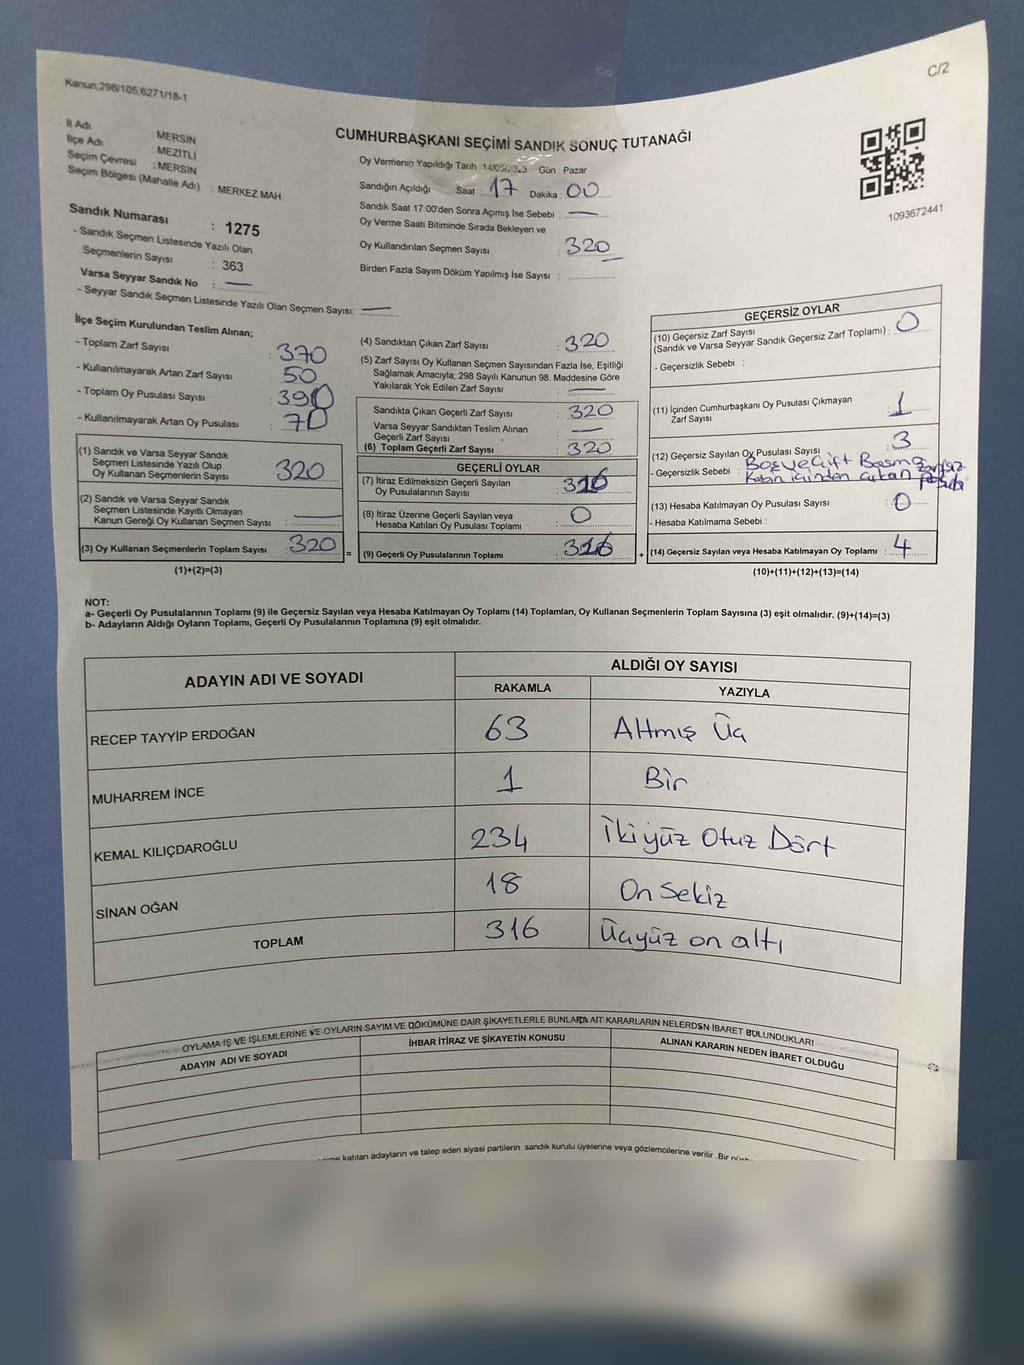 Kanun,298/105,6271/18-1
C/2
İl Adı MERSİN
İlçe Adı MEZİTLİ
Seçim Çevresi : MERSİN
Seçim Bölgesi (Mahalle Adı) : MERKEZ MAH.
Sandık Numarası : 1275
- Sandık Seçmen Listesinde Yazılı Olan
Seçmenlerin Sayısı : 363
Varsa Seyyar Sandık No : —
- Seyyar Sandık Seçmen Listesinde Yazılı Olan Seçmen Sayısı: —
CUMHURBAŞKANI SEÇİMİ SANDIK SONUÇ TUTANAĞI
Oy Vermenin Yapıldığı Tarih 14/05/2023 Gün : Pazar
Sandığın Açıldığı Saat 17 Dakika 00
Sandık Saat 17:00'den Sonra Açımış İse Sebebi : —
Oy Verme Saati Bitiminde Sırada Bekleyen ve
Oy Kullandırılan Seçmen Sayısı : 320
Birden Fazla Sayım Döküm Yapılmış İse Sayısı :
1093672441
İlçe Seçim Kurulundan Teslim Alınan;
- Toplam Zarf Sayısı : 370
- Kullanılmayarak Artan Zarf Sayısı : 50
- Toplam Oy Pusulası Sayısı : 390
- Kullanılmayarak Artan Oy Pusulası : 70
(1) Sandık ve Varsa Seyyar Sandık
Seçmen Listesinde Yazılı Olup
Oy Kullanan Seçmenlerin Sayısı : 320
(2) Sandık ve Varsa Seyyar Sandık
Seçmen Listesinde Kayıtlı Olmayan
Kanun Gereği Oy Kullanan Seçmen Sayısı : —
(3) Oy Kullanan Seçmenlerin Toplam Sayısı : 320
(1)+(2)=(3)
(4) Sandıktan Çıkan Zarf Sayısı : 320
(5) Zarf Sayısı Oy Kullanan Seçmen Sayısından Fazla İse, Eşitliği
Sağlamak Amacıyla; 298 Sayılı Kanunun 98. Maddesine Göre
Yakılarak Yok Edilen Zarf Sayısı : —
Sandıkta Çıkan Geçerli Zarf Sayısı : 320
Varsa Seyyar Sandıktan Teslim Alınan
Geçerli Zarf Sayısı : —
(6) Toplam Geçerli Zarf Sayısı : 320
GEÇERLİ OYLAR
(7) İtiraz Edilmeksizin Geçerli Sayılan
Oy Pusulasının Sayısı : 316
(8) İtiraz Üzerine Geçerli Sayılan veya
Hesaba Katılan Oy Pusulası Toplamı : 0
= (9) Geçerli Oy Pusulalarının Toplamı : 316 +
GEÇERSİZ OYLAR
(10) Geçersiz Zarf Sayısı
(Sandık ve Varsa Seyyar Sandık Geçersiz Zarf Toplamı) : 0
- Geçersizlik Sebebi :
(11) İçinden Cumhurbaşkanı Oy Pusulası Çıkmayan
Zarf Sayısı : 1
(12) Geçersiz Sayılan Oy Pusulası Sayısı : 3
- Geçersizlik Sebebi : Boş ve Çift Basma
içinden çıkan
(13) Hesaba Katılmayan Oy Pusulası Sayısı : 0
- Hesaba Katılmama Sebebi :
(14) Geçersiz Sayılan veya Hesaba Katılmayan Oy Toplamı : 4
(10)+(11)+(12)+(13)=(14)
NOT:
a- Geçerli Oy Pusulalarının Toplamı (9) ile Geçersiz Sayılan veya Hesaba Katılmayan Oy Toplamı (14) Toplamları, Oy Kullanan Seçmenlerin Toplam Sayısına (3) eşit olmalıdır. (9)+(14)=(3)
b- Adayların Aldığı Oyların Toplamı, Geçerli Oy Pusulalarının Toplamına (9) eşit olmalıdır.
ADAYIN ADI VE SOYADI
ALDIĞI OY SAYISI
RAKAMLA YAZIYLA
RECEP TAYYİP ERDOĞAN 63 Altmış Üç
MUHARREM İNCE 1 Bir
KEMAL KILIÇDAROĞLU 234 İkiyüz Otuz Dört
SİNAN OĞAN 18 On Sekiz
TOPLAM 316 Üçyüz on altı
OYLAMA İŞ VE İŞLEMLERİNE VE OYLARIN SAYIM VE DÖKÜMÜNE DAİR ŞİKAYETLERLE BUNLARA AİT KARARLARIN NELERDEN İBARET BULUNDUKLARI
ADAYIN ADI VE SOYADI İHBAR İTİRAZ VE ŞİKAYETİN KONUSU ALINAN KARARIN NEDEN İBARET OLDUĞU
katılan adayların ve talep eden siyasi partilerin sandık kurulu üyelerine veya gözlemcilerine verilir .Bir